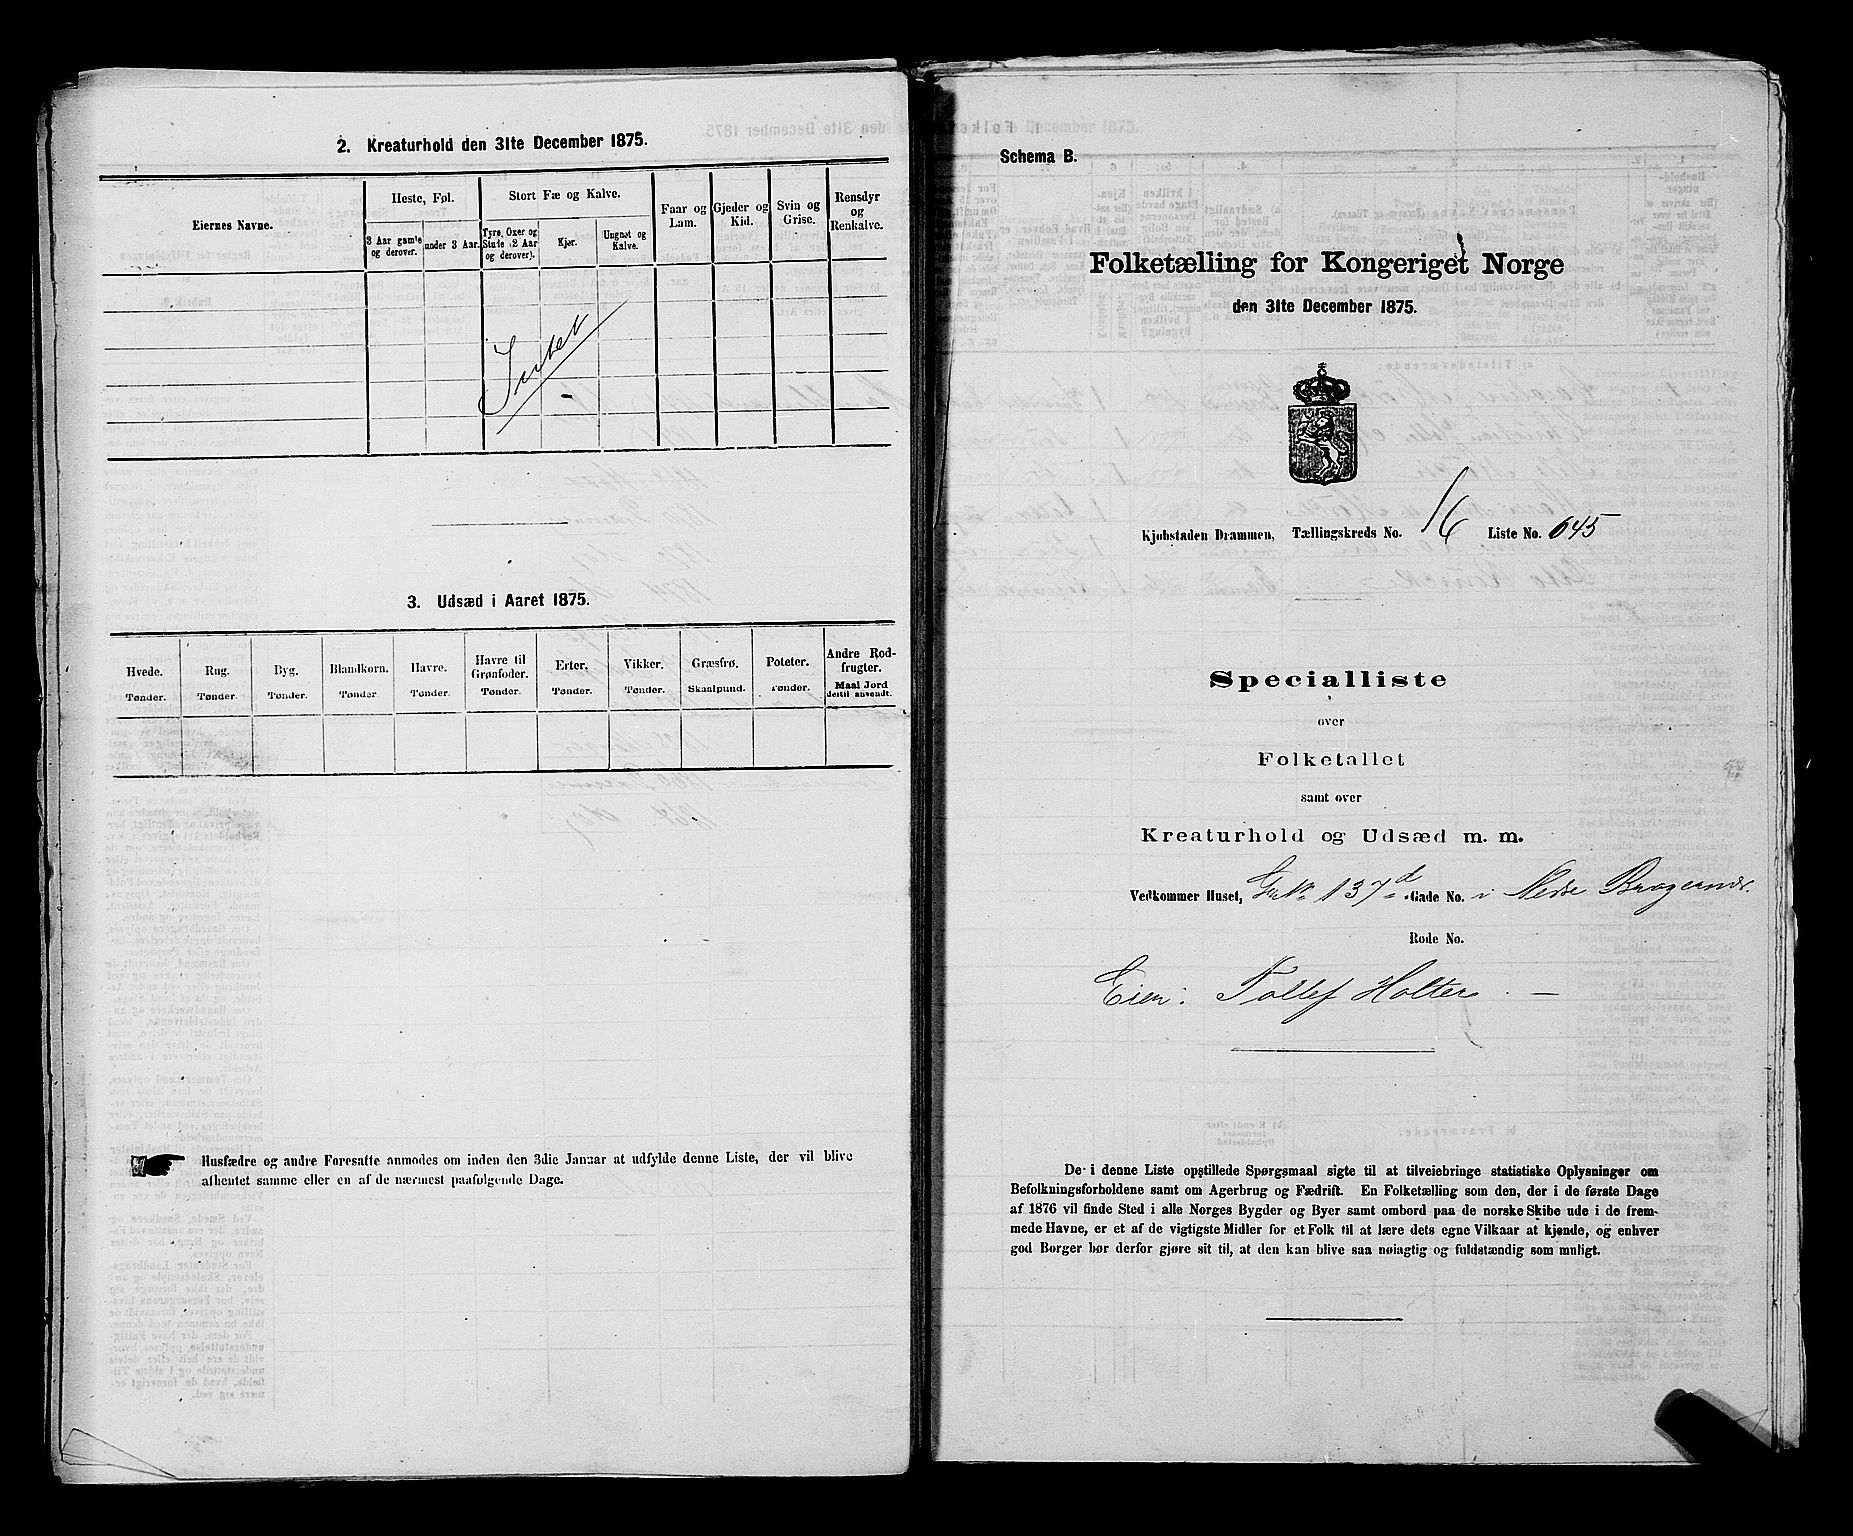 2. Kreaturhold den 31te December 1875.
Eiernes Navne.
Heste, Føl.
3 Aar gamle og derover.
under 3 Aar.
Stort Fæ og Kalve.
Tyre, Oxer og Stute (2 Aar og derover).
Kjør.
Ungnøt og Kalve.
Faar og Lam.
Gjeder og Kid.
Svin og Grise.
Rensdyr og Renkalve.
Intet
3. Udsæd i Aaret 1875.
Hvede. Rug. Byg. Blandkorn. Havre. Havre til Grønfoder. Erter. Vikker. Græsfrø. Poteter. Andre Rodfrugter.
Tønder. Tønder. Tønder. Tønder. Tønder. Tønder. Tønder. Tønder. Skaalpund. Tønder. Maal Jord dertil anvendt.
Husfædre og andre Foresatte anmodes om inden den 3die Januar at udfylde denne Liste, der vil blive
afhentet samme eller en af de nærmest paafølgende Dage.
Schema B.
Folketælling for Kongeriget Norge
den 31te December 1875.
Kjøbstaden Drammen, Tællingskreds No. 16 Liste No. 645
Specialliste
over
Folketallet
samt over
Kreaturhold og Udsæd m. m.
Vedkommer Huset, Gr. No 137d Gade No. i Nedre Bragernæs.
Rode No.
Eier: Tollef Holter
De i denne Liste opstillede Spørgsmaal sigte til at tilveiebringe statistiske Oplysninger om
Befolkningsforholdene samt om Agerbrug og Fædrift. En Folketælling som den, der i de første Dage
af 1876 vil finde Sted i alle Norges Bygder og Byer samt ombord paa de norske Skibe ude i de frem-
mede Havne, er et af de vigtigste Midler for et Folk til at lære dets egne Vilkaar at kjende, og enhver
god Borger bør derfor gjøre sit til, at den kan blive saa nøiagtig og fuldstændig som muligt.